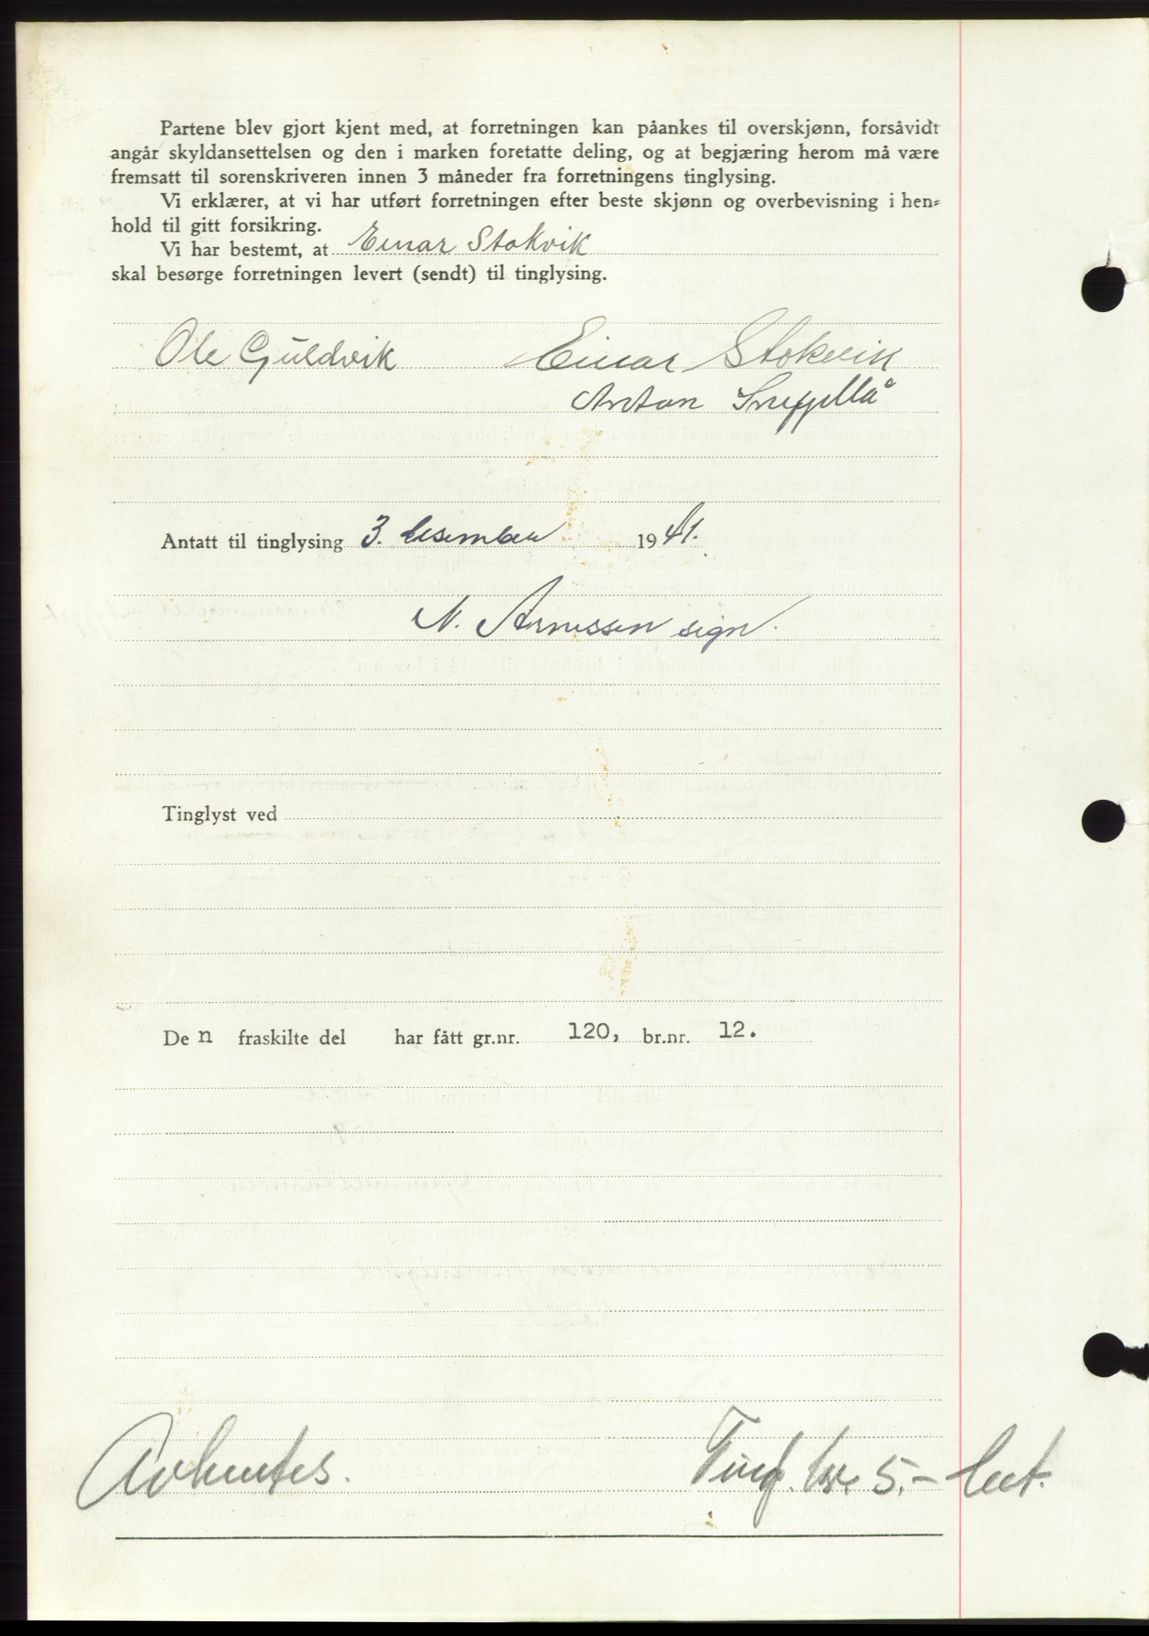 Partene blev gjort kjent med, at forretningen kan påankes til overskjønn, forsåvidt
angår skyldansettelsen og den i marken foretatte deling, og at begjæring herom må være
fremsatt til sorenskriveren innen 3 måneder fra forretningens tinglysing.
Vi erklærer, at vi har utført forretningen efter beste skjønn og overbevisning i hen-
hold til gitt forsikring.
Vi har bestemt, at Einar Stokvik
skal besørge forretningen levert (sendt) til tinglysing.
Ole Guldvik Einar Stokvik
Anton
Antatt til tinglysing 3. desember 1941.
N. Arnessen sign.
Tinglyst ved
De n fraskilte del har fått gr.nr. 120, br.nr. 12.
Avhentes. Tingl. kr. 5.- bet.